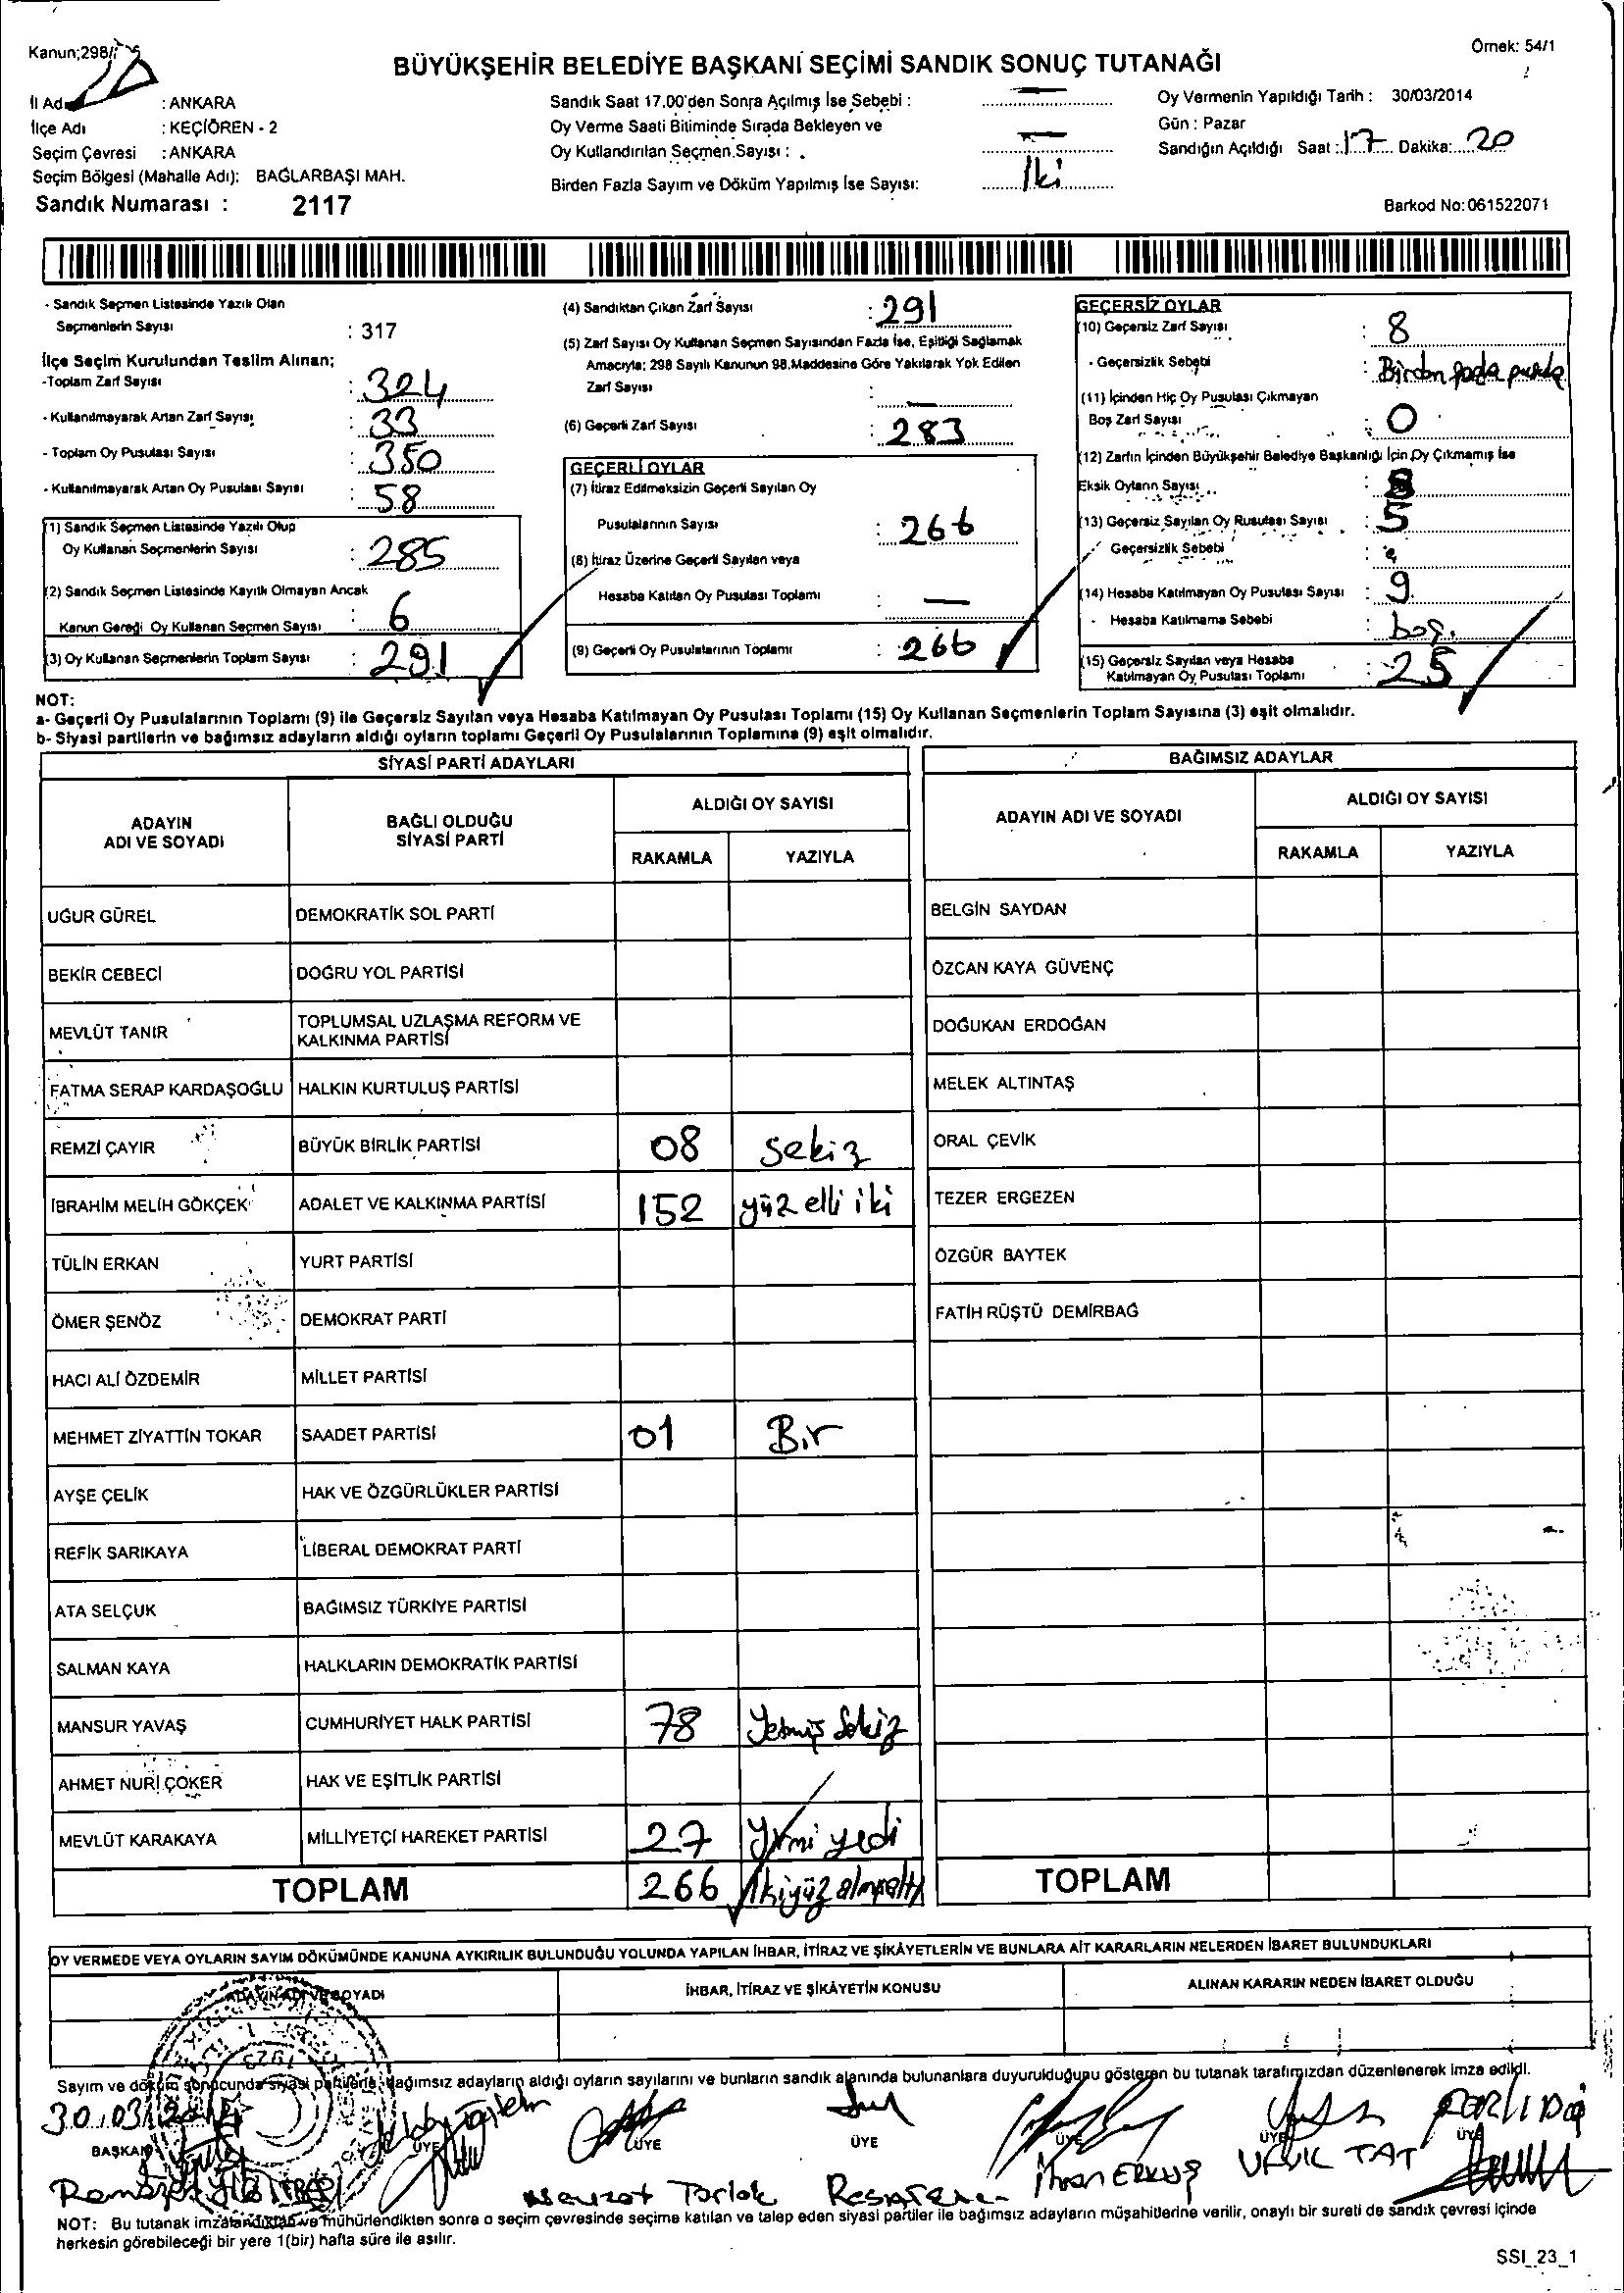 Kanun;298/
Örnek: 54/1
BÜYÜKŞEHİR BELEDİYE BAŞKANI SEÇİMİ SANDIK SONUÇ TUTANAĞI
İl Adı : ANKARA
İlçe Adı : KEÇİÖREN - 2
Seçim Çevresi : ANKARA
Seçim Bölgesi (Mahalle Adı): BAĞLARBAŞI MAH.
Sandık Numarası : 2117
Sandık Saat 17.00'den Sonra Açılmış İse Sebebi : —
Oy Verme Saati Bitiminde Sırada Bekleyen ve
Oy Kullandırılan Seçmen Sayısı : —
Birden Fazla Sayım ve Döküm Yapılmış İse Sayısı: İki
Oy Vermenin Yapıldığı Tarih : 30/03/2014
Gün : Pazar
Sandığın Açıldığı Saat : 17 Dakika: 20
Barkod No: 061522071
- Sandık Seçmen Listesinde Yazılı Olan
Seçmenlerin Sayısı : 317
İlçe Seçim Kurulundan Teslim Alınan;
-Toplam Zarf Sayısı : 324
- Kullanılmayarak Artan Zarf Sayısı : 33
- Toplam Oy Pusulası Sayısı : 350
- Kullanılmayarak Artan Oy Pusulası Sayısı : 58
(1) Sandık Seçmen Listesinde Yazılı Olup
Oy Kullanan Seçmenlerin Sayısı : 285
(2) Sandık Seçmen Listesinde Kayıtlı Olmayan Ancak
Kanun Gereği Oy Kullanan Seçmen Sayısı : 6
(3) Oy Kullanan Seçmenlerin Toplam Sayısı : 291
(4) Sandıktan Çıkan Zarf Sayısı : 291
(5) Zarf Sayısı Oy Kullanan Seçmen Sayısından Fazla İse, Eşitliği Sağlamak
Amacıyla; 298 Sayılı Kanunun 98.Maddesine Göre Yakılarak Yok Edilen
Zarf Sayısı : —
(6) Geçerli Zarf Sayısı : 283
GEÇERLİ OYLAR
(7) İtiraz Edilmeksizin Geçerli Sayılan Oy
Pusulalarının Sayısı : 266
(8) İtiraz Üzerine Geçerli Sayılan veya
Hesaba Katılan Oy Pusulası Toplamı : —
(9) Geçerli Oy Pusulalarının Toplamı : 266
GEÇERSİZ OYLAR
(10) Geçersiz Zarf Sayısı : 8
- Geçersizlik Sebebi : Birden
(11) İçinden Hiç Oy Pusulası Çıkmayan
Boş Zarf Sayısı : 0
(12) Zarfın İçinden Büyükşehir Belediye Başkanlığı İçin Oy Çıkmamış İse
Eksik Oyların Sayısı :
(13) Geçersiz Sayılan Oy Pusulası Sayısı : 5
Geçersizlik Sebebi :
(14) Hesaba Katılmayan Oy Pusulası Sayısı : 9
- Hesaba Katılmama Sebebi : boş.
(15) Geçersiz Sayılan veya Hesaba
Katılmayan Oy Pusulası Toplamı : 25
NOT:
a- Geçerli Oy Pusulalarının Toplamı (9) ile Geçersiz Sayılan veya Hesaba Katılmayan Oy Pusulası Toplamı (15) Oy Kullanan Seçmenlerin Toplam Sayısına (3) eşit olmalıdır.
b- Siyasi partilerin ve bağımsız adayların aldığı oyların toplamı Geçerli Oy Pusulalarının Toplamına (9) eşit olmalıdır.
SİYASİ PARTİ ADAYLARI
ADAYIN ADI VE SOYADI BAĞLI OLDUĞU SİYASİ PARTİ ALDIĞI OY SAYISI
RAKAMLA YAZIYLA
UĞUR GÜREL DEMOKRATİK SOL PARTİ
BEKİR CEBECİ DOĞRU YOL PARTİSİ
MEVLÜT TANIR TOPLUMSAL UZLAŞMA REFORM VE KALKINMA PARTİSİ
FATMA SERAP KARDAŞOĞLU HALKIN KURTULUŞ PARTİSİ
REMZİ ÇAYIR BÜYÜK BİRLİK PARTİSİ 08 sekiz
İBRAHİM MELİH GÖKÇEK ADALET VE KALKINMA PARTİSİ 152 yüz elli iki
TÜLİN ERKAN YURT PARTİSİ
ÖMER ŞENÖZ DEMOKRAT PARTİ
HACI ALİ ÖZDEMİR MİLLET PARTİSİ
MEHMET ZİYATTİN TOKAR SAADET PARTİSİ 01 Bir
AYŞE ÇELİK HAK VE ÖZGÜRLÜKLER PARTİSİ
REFİK SARIKAYA LİBERAL DEMOKRAT PARTİ
ATA SELÇUK BAĞIMSIZ TÜRKİYE PARTİSİ
SALMAN KAYA HALKLARIN DEMOKRATİK PARTİSİ
MANSUR YAVAŞ CUMHURİYET HALK PARTİSİ 78 Yetmiş Sekiz
AHMET NURİ ÇOKER HAK VE EŞİTLİK PARTİSİ
MEVLÜT KARAKAYA MİLLİYETÇİ HAREKET PARTİSİ 27 Yirmi yedi
TOPLAM 266 ikiyüz altmışaltı
BAĞIMSIZ ADAYLAR
ADAYIN ADI VE SOYADI ALDIĞI OY SAYISI
RAKAMLA YAZIYLA
BELGİN SAYDAN
ÖZCAN KAYA GÜVENÇ
DOĞUKAN ERDOĞAN
MELEK ALTINTAŞ
ORAL ÇEVİK
TEZER ERGEZEN
ÖZGÜR BAYTEK
FATİH RÜŞTÜ DEMİRBAĞ
TOPLAM
OY VERMEDE VEYA OYLARIN SAYIM DÖKÜMÜNDE KANUNA AYKIRILIK BULUNDUĞU YOLUNDA YAPILAN İHBAR, İTİRAZ VE ŞİKÂYETLERİN VE BUNLARA AİT KARARLARIN NELERDEN İBARET BULUNDUKLARI
ADAYIN ADI VE SOYADI İHBAR, İTİRAZ VE ŞİKÂYETİN KONUSU ALINAN KARARIN NEDEN İBARET OLDUĞU
Sayım ve döküm sonucunda siyasi partilerle, bağımsız adayların aldığı oyların sayılarını ve bunların sandık alanında bulunanlara duyurulduğunu gösteren bu tutanak tarafımızdan düzenlenerek imza edildi.
30.03.2014
BAŞKAN ÜYE ÜYE ÜYE ÜYE ÜYE ÜYE
Nevzat Torlak
İhsan ERKUŞ
UFUK TAT
NOT: Bu tutanak imzalandıktan ve mühürlendikten sonra o seçim çevresinde seçime katılan ve talep eden siyasi partiler ile bağımsız adayların müşahitlerine verilir, onaylı bir sureti de sandık çevresi içinde
herkesin görebileceği bir yere 1(bir) hafta süre ile asılır.
SSI_23_1